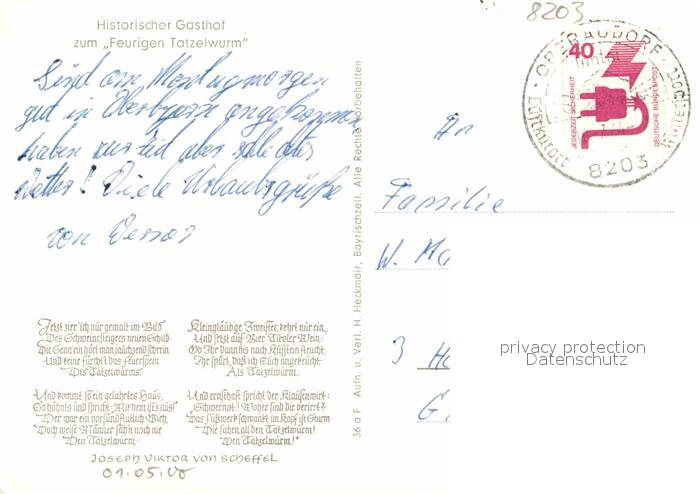 8203
Historischer Gasthof
zum „Feurigen Tatzelwurm"
Sind am Montagmorgen
gut in Oberbayern angekommen
haben zur Zeit aber schlechtes
Wetter! Viele Urlaubsgrüße
von
OBERAUDORF
Luftkurort
8203
40
JEDERZEIT SICHERHEIT
DEUTSCHE BUNDESPOST
An
Familie
W. Ma
3 Ha
G.
privacy protection
Datenschutz
36 a F Aufn. u. Verl. H. Heckmair, Bayrischzell. Alle Rechte vorbehalten
Jetzt zier' ich nur gemalt im Bild
Des Schweinsteigers neuen Schild
Die Senn'ein hört man jauchzend schrein
Und keine fürcht't das Feuerspein
Des Tatzelwurms.
Und kommt so ein gelahrtes Haus,
So höhnts und spricht: „Mit dem ists aus!"
Der war ein vorsündflutlich Vieh,
Doch weise Männer sah'n noch nie
Den Tatzelwurm.
Kleingläub'ge Zweifler, kehrt nur ein,
Und setzt auf Bier Tiroler Wein:
Ob Ihr dann bis nach Kufstein fleucht,
Ihr spürt, daß ich Euch angekeucht
Als Tatzelwurm.
Und ernsthaft spricht der Klausenwirt:
„Schwernot! Woher sind die verirrt?
Das Fußwerk schwankt, im Kopf ist Sturm
Die sahen all den Tatzelwurm!
Den Tatzelwurm!"
JOSEPH VIKTOR VON SCHEFFEL